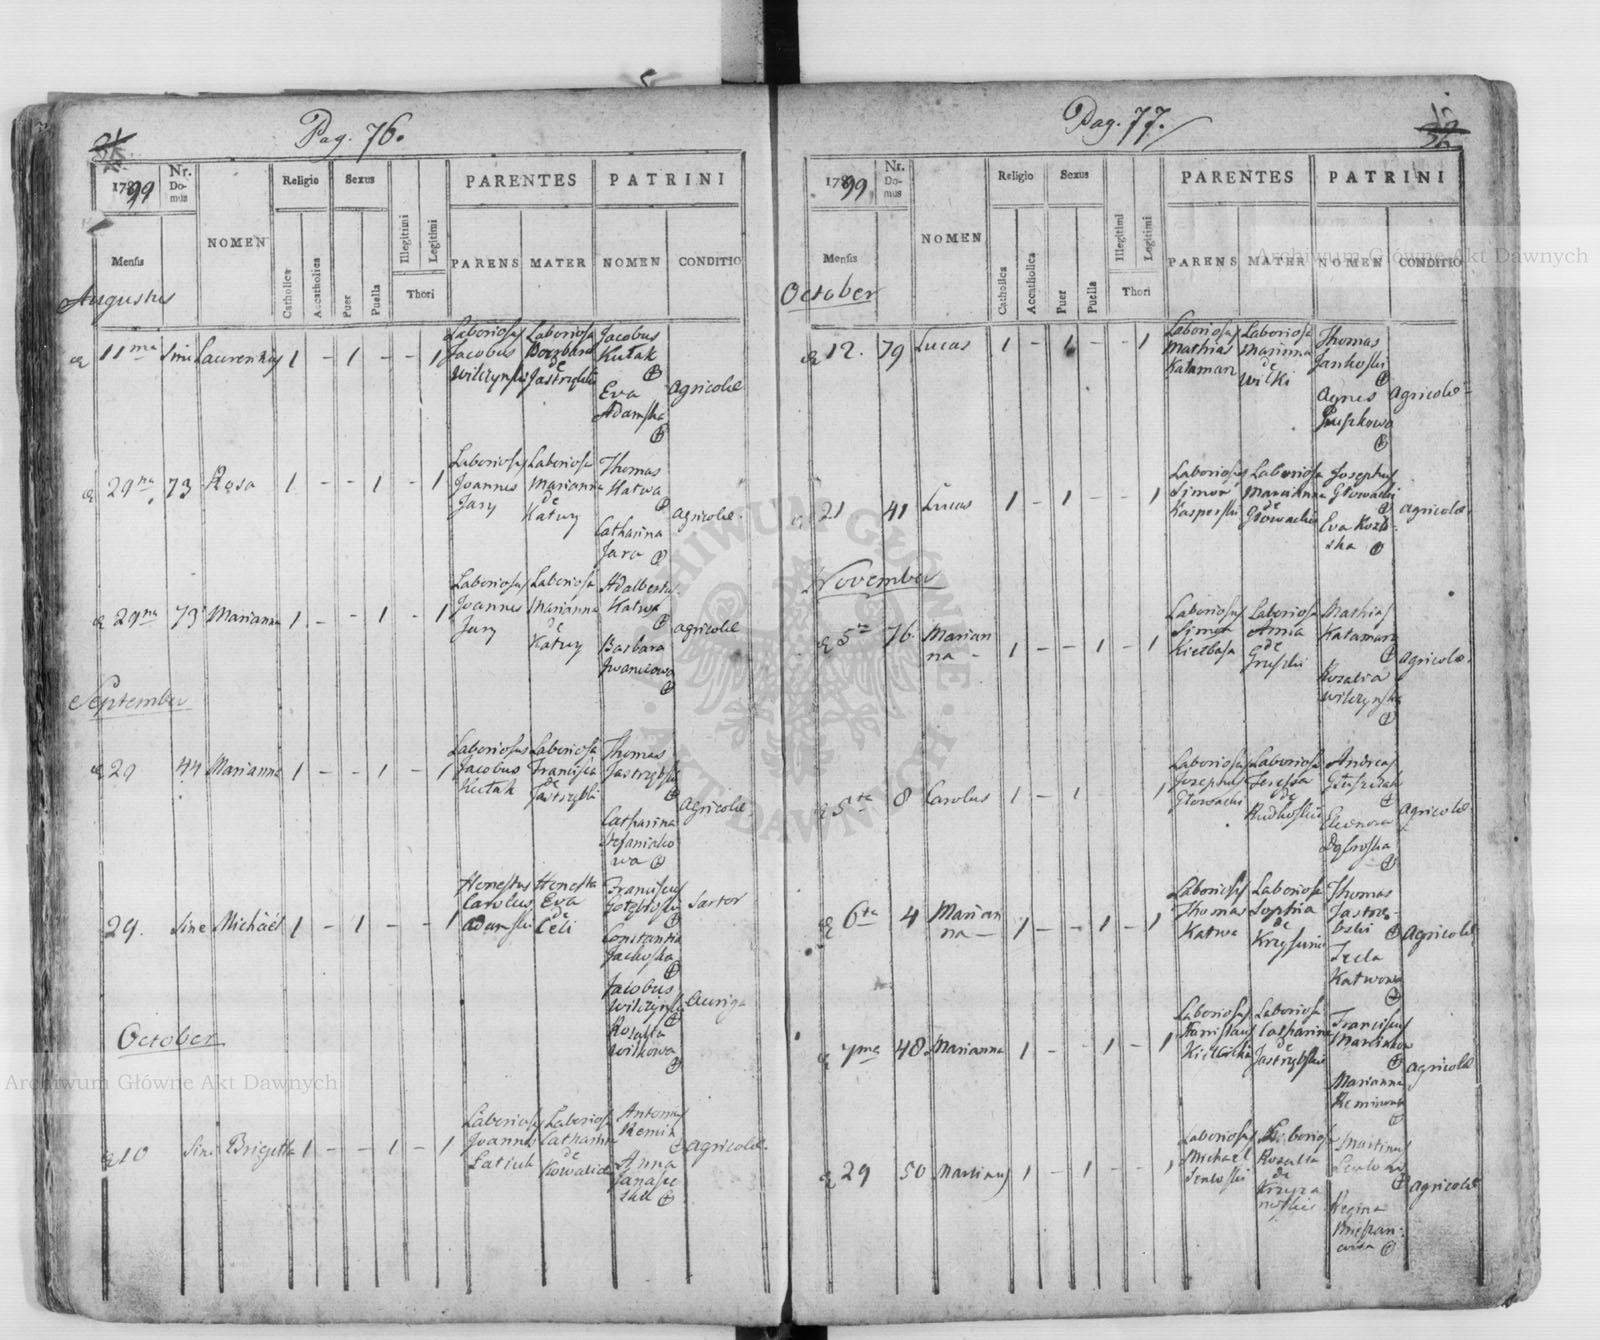 Pag. 76.
1799
Nr. Domus
NOMEN
Religio
Sexus
PARENTES
PATRINI
Mensis
Catholica
Accatholica
Puer
Puella
Illegitimi
Legitimi
Thori
PARENS
MATER
NOMEN
CONDITIO
Augustus
11ma Sine Laurentius 1 - 1 - - 1
Laboriosus Jacobus Wilczynski
Laboriosa de Jastrzębski
Jacobus Kułak
Eva Adamska
Agricolæ
29na 73 Rosa 1 - - 1 - 1
Laboriosus Joannes Jary
Laboriosa Marianna de Katwy
Thomas Katwa
Catharina Jara
Agricolæ.
29na 73 Marianna 1 - - 1 - 1
Laboriosus Joannes Jary
Laboriosa Marianna de Katwy
Adalbertus Katwa
Barbara Iwanicowa
Agricolæ
September
29 44 Marianna 1 - - 1 - 1
Laboriosus Jacobus Kułak
Laboriosa Francisca de Jastrzębski
Thomas Jastrzębski
Catharina Stefaniakowa
Agricolæ.
29. Sine Michäel 1 - 1 - - 1
Honestus Carolus Adamski
Honesta Eva de Celi
Franciscus Gołębioski
Constantia Jachoska
Sartor
Jacobus Wilczynski
Rosalia Wilkowa
Auriga
October
10 Sine Brigitta 1 - - 1 - 1
Laboriosus Joannes Łatiuk
Laboriosa Catharina de
Antonius Remin
Anna
Agricolæ.
Pag. 77.
1799
Nr. Domus
NOMEN
Religio
Sexus
PARENTES
PATRINI
Mensis
Catholica
Accatholica
Puer
Puella
Illegitimi
Legitimi
Thori
PARENS
MATER
NOMEN
CONDITIO
October
12. 79 Lucas 1 - 1 - - 1
Laboriosus Mathias Kałamarz
Laboriosa Marianna de Wilki
Thomas Jankoski
Agnes Gruszkowa
Agricolæ
21 41 Lucas 1 - 1 - - 1
Laboriosus Simon Kasperski
Laboriosa Marianna de Głowackie
Josephus Głowacki
Eva Kozłoska
Agricolæ.
November
5ta 76. Marianna - 1 - - 1 - 1
Laboriosus Simon Kiełbasa
Laboriosa Anna de Gruszki
Mathias Kałamarz
Rozalia Wilczynska
Agricolæ.
5ta 8 Carolus 1 - 1 1
Laboriosus Josephus Głowacki
Laboriosa Josepha de Rudkoskie
Andreas Głuszczak
Eleonora Dąbroska
Agricolæ
6ta 4 Marianna - 1 - - 1 - 1
Laboriosus Thomas Katwa
Laboriosa Sophia de
Thomas Jastrzębski
Tecla Katwowa
Agricolæ
7ma 48 Marianna 1 - - 1 - 1
Laboriosus Stanislaus
Laboriosa Catharina de Jastrzębskie
Franciscus
Marianna Reminowa
Agricolæ
29 50 Martinus 1 - 1 - - 1
Laboriosus Michael
Laboriosa Rozalia de
Martinus
Regina
Agricolæ
Archiwum Główne Akt Dawnych
Archiwum Główne Akt Dawnych
ARCHIWUM GŁÓWNE AKT DAWNYCH